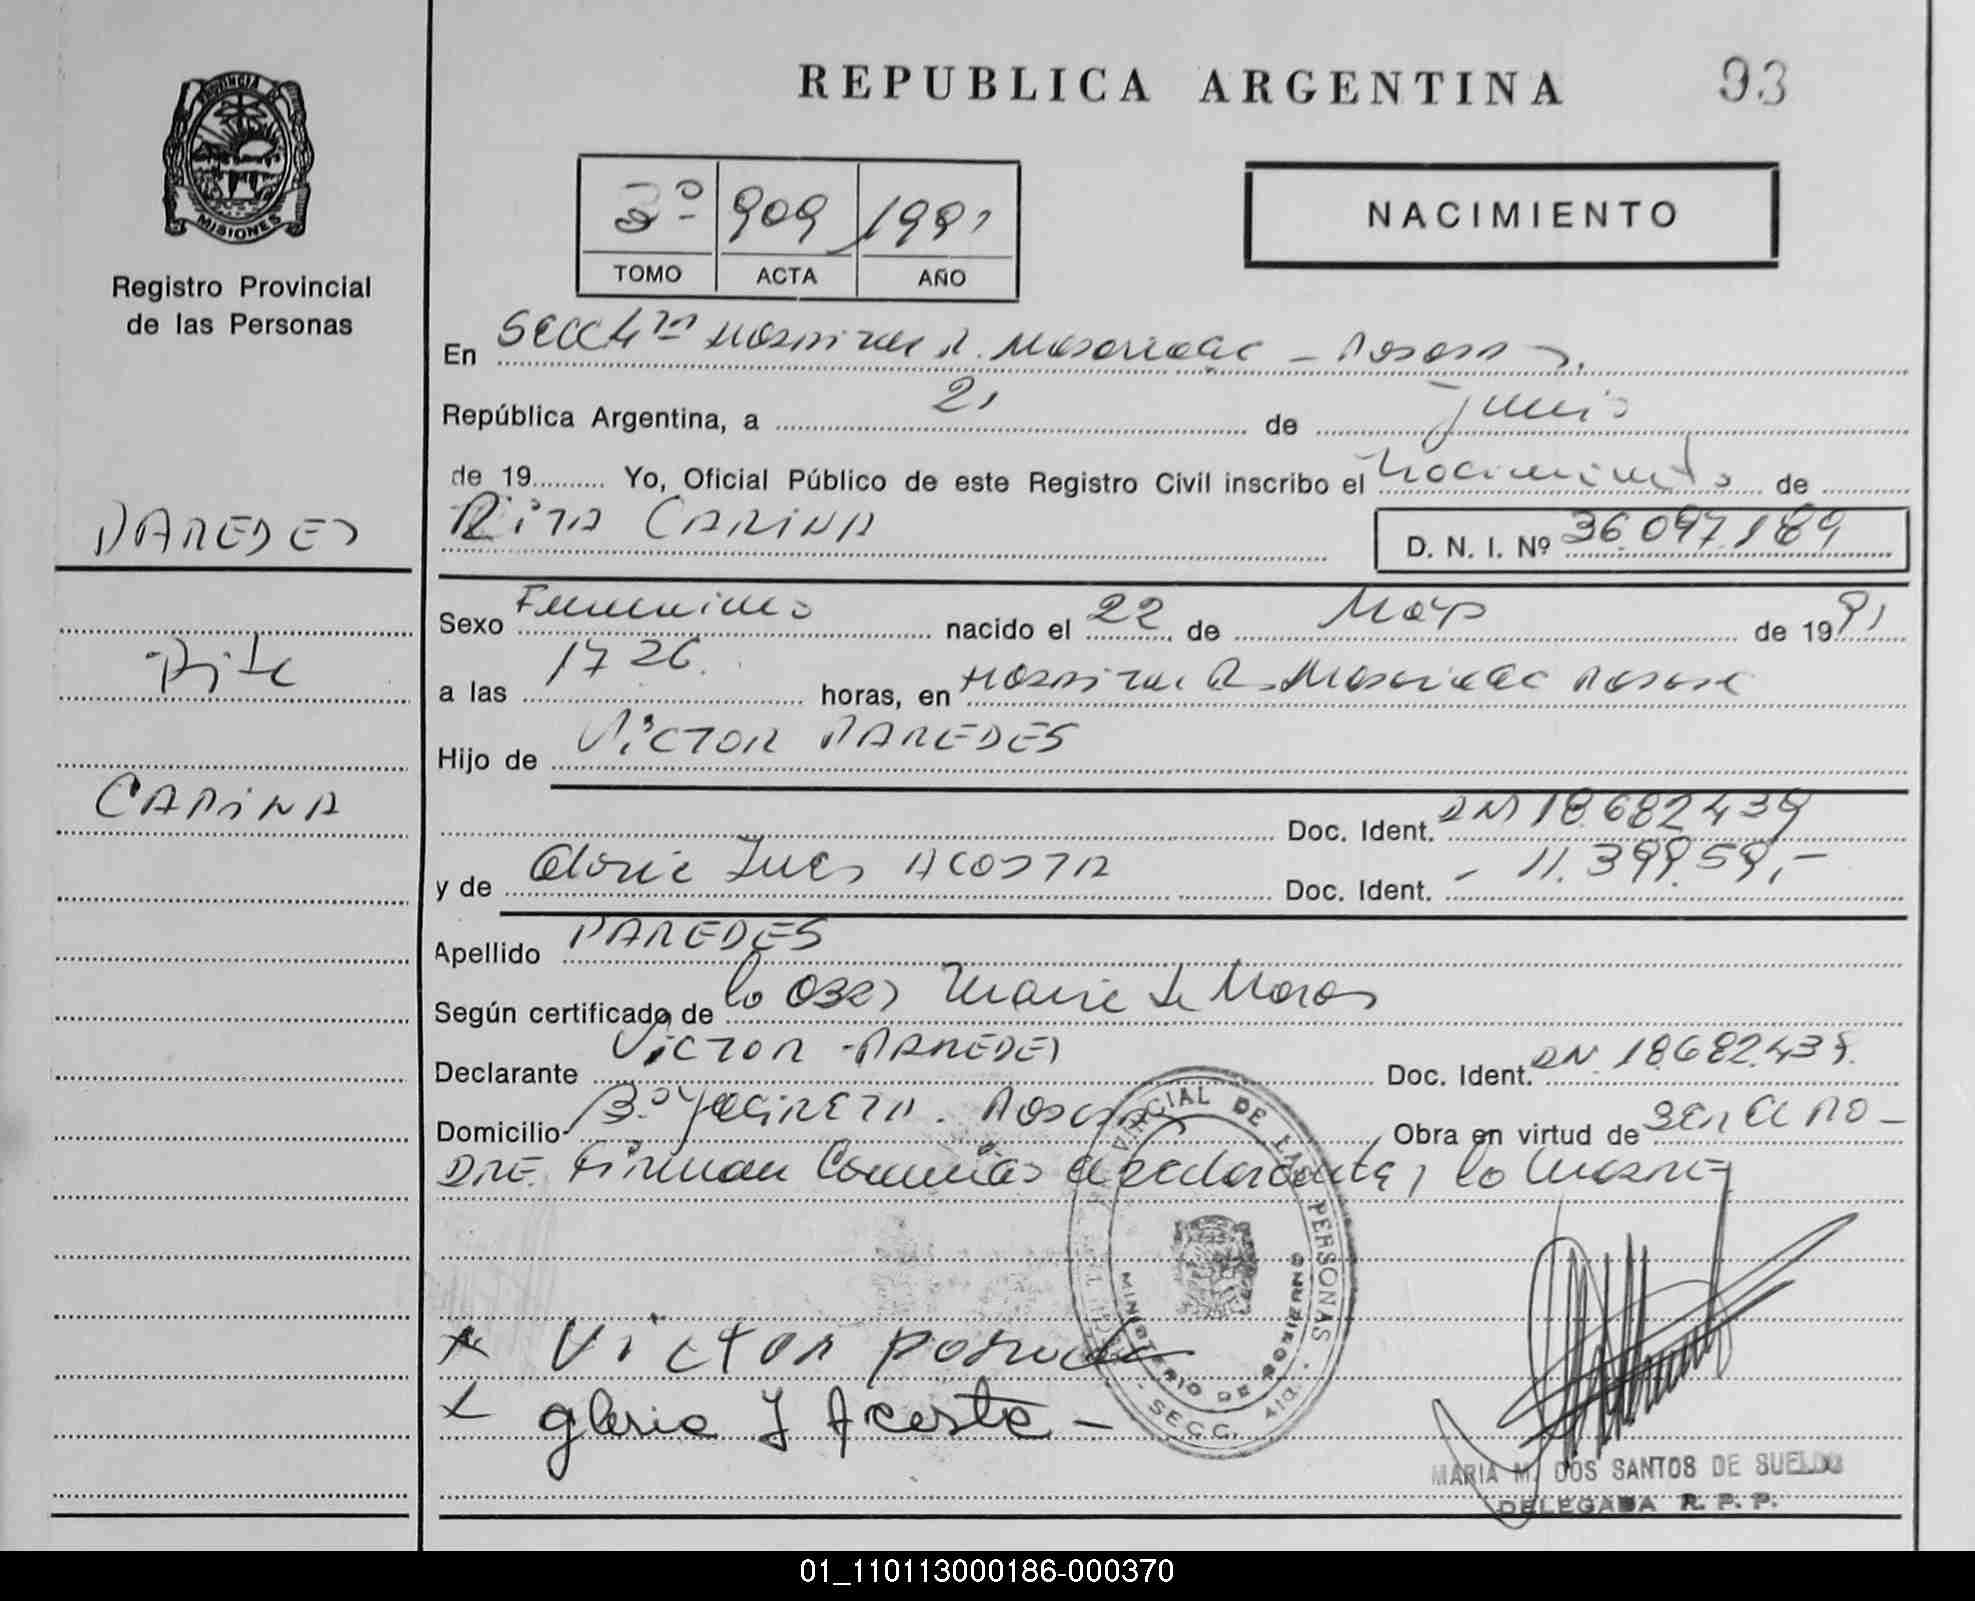 PROVINCIA DE
MISIONES
Registro Provincial
de las Personas
PAREDES
Rita
CARINA
REPUBLICA ARGENTINA 93
3º 909 1991
TOMO ACTA AÑO
NACIMIENTO
En Secc 4ta Hospital R. Madariaga - Posadas
República Argentina, a 21 de Junio
de 19 Yo, Oficial Público de este Registro Civil inscribo el Nacimiento de
RITA CARINA D. N. I. Nº 36.097.189
Sexo Femenino nacido el 22 de Mayo de 1991
a las 17 26 horas, en Hospital R. Madariaga Posadas
Hijo de VICTOR PAREDES
Doc. Ident. DNI 18.682.439
y de Gloria Ines ACOSTA Doc. Ident. - 11.399.591 -
Apellido PAREDES
Según certificado de la Obst Maria de
Declarante VICTOR PAREDES Doc. Ident. DNI 18.682.439.
Domicilio Bº Yacireta. Posadas Obra en virtud de ser el PA-
DRE. Firman Conmigo el declarante y la madre
x Victor Paredes
x gloria I Acosta -
PROVINCIAL DE LAS PERSONAS
MINISTERIO DE GOBIERNO
SECC. 4ta
MARIA M. DOS SANTOS DE SUELDO
DELEGADA R. P. P.
01_110113000186-000370